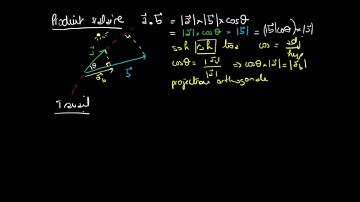 Produit scalaire
a⃗ . b⃗ = |a⃗| × |b⃗| × cos θ
= |a⃗| × cos θ × |b⃗| = (|b⃗| cos θ) × |a⃗|
soh cah toa cos = adj/hyp
cos θ = |a⃗_b|/|a⃗| ⇒ cos θ × |a⃗| = |a⃗_b|
projection orthogonale
a⃗
θ
a⃗_b
b⃗
Travail